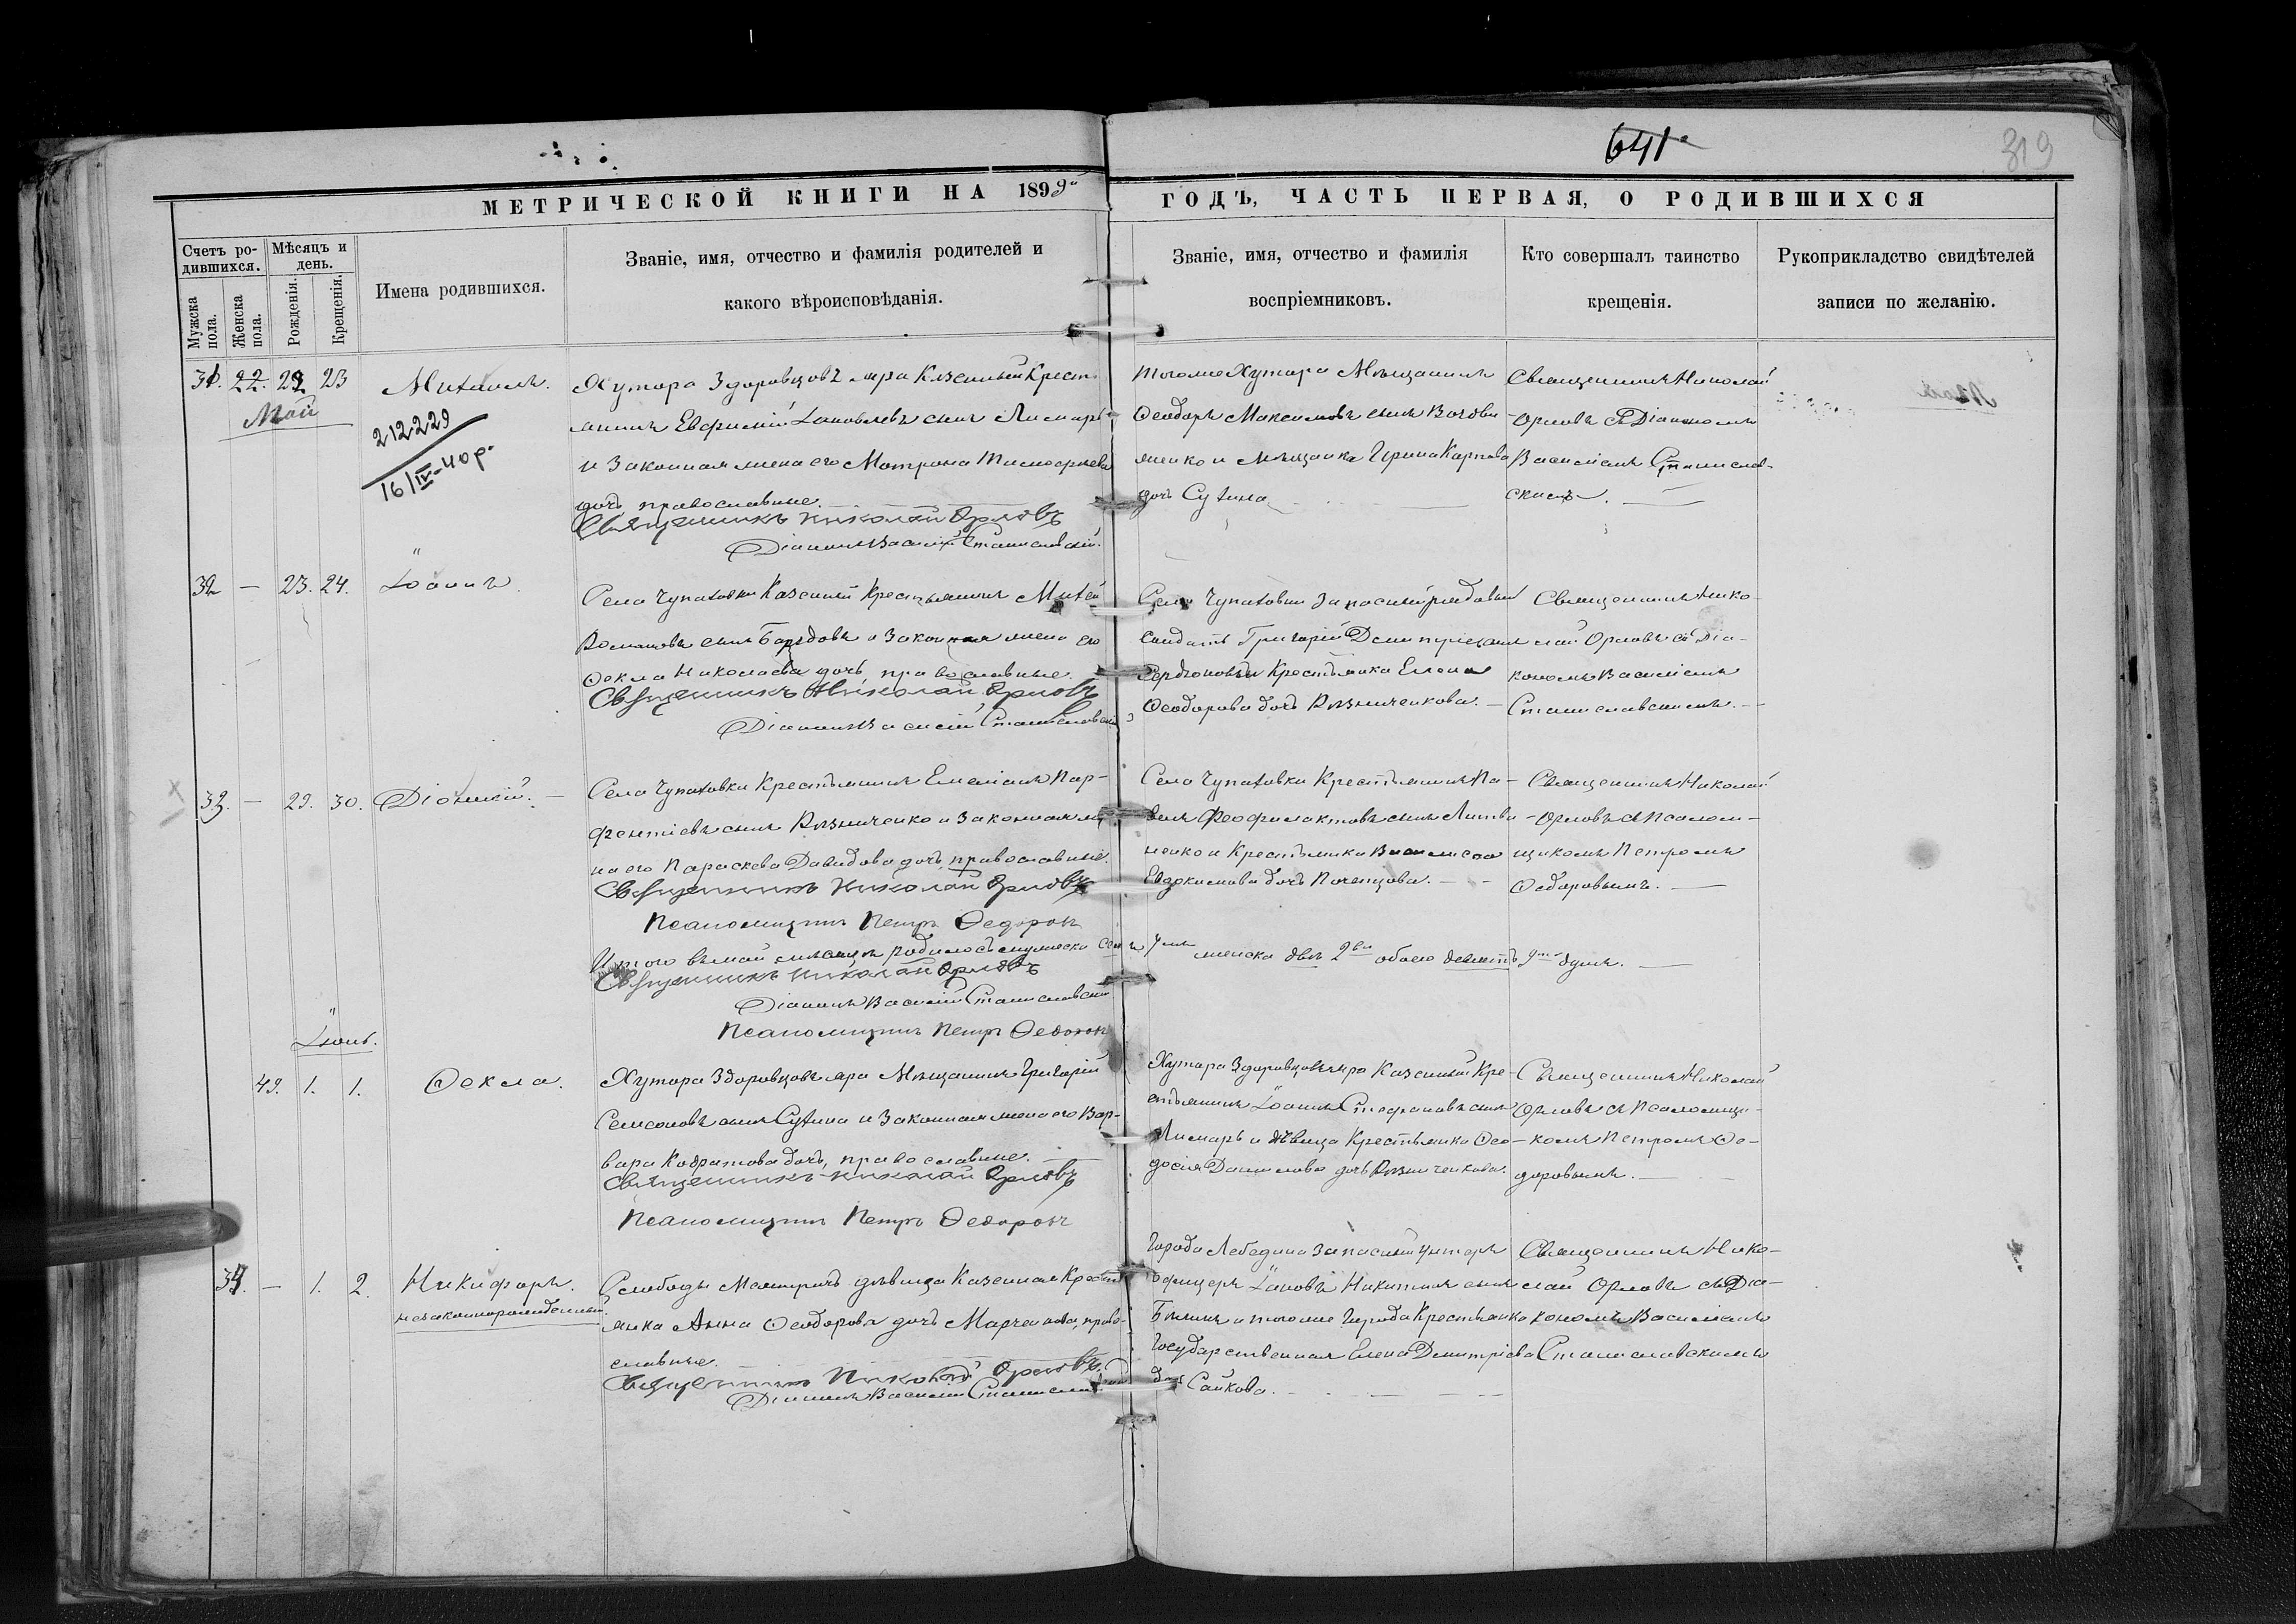 641
319
МЕТРИЧЕСКОЙ КНИГИ НА 1899й ГОДЪ, ЧАСТЬ ПЕРВАЯ, О РОДИВШИХСЯ
Счетъ ро-
дившихся.
Мужска пола.
Женска пола.
Мѣсяцъ и
день.
Рожденія.
Крещенія.
Имена родившихся.
Званіе, имя, отчество и фамилія родителей и
какого вѣроисповѣданія.
Званіе, имя, отчество и фамилія
воспріемниковъ.
Кто совершалъ таинство
крещенія.
Рукоприкладство свидѣтелей
записи по желанію.
31. 22. 23
Май
Михаилъ.
212229
16/IV-40 р.
Хутора Здоровцовъ Казенный Крест-
янинъ Евфимій Іаковлевъ сынъ Лимарь
и законная жена его Матрона
дочь, православные.
Священникъ Николай Орловъ
Діаконъ Василій Станиславскій.
тогоже Хутора Мѣщанинъ
Ѳеодоръ Максимовъ сынъ
женко и мѣщанка Ирина Карпова
дочь Сухина
Священникъ Николай
Орловъ съ Діакономъ
Василіемъ Станислав-
скимъ.
32 — 23. 24. Іоаннъ
Села Чупаховки Казенный Крестьянинъ
Романовъ сынъ и законная жена его
Ѳекла Николаева дочь, православные.
Священникъ Николай Орловъ
Діаконъ Василій Станиславскій
Села Чупаховки запасный рядовый
солдатъ Григорій
Крестьянка Елена
Ѳеодорова дочь Рѣзниченкова. —
Священникъ Нико-
лай Орловъ съ Діа-
кономъ Василіемъ
Станиславскимъ. —
33. — 29. 30. Діонисій. —
Села Чупаховки Крестьянинъ Емеліанъ Пар-
фентіевъ сынъ Рѣзниченко и законная же
на его Параскева Давидова дочь, православные.
Священникъ Николай Орловъ
Псаломщикъ Петръ Ѳедоровъ
Села Чупаховки Крестьянинъ Па-
велъ Феофилактовъ сынъ Литви-
ненко и Крестьянка Василиса
Евдокимова дочь Почепцова. —
Священникъ Николай
Орловъ съ Псалом-
щикомъ Петромъ
Ѳедоровымъ. —
Итого въ май мѣсяцѣ родилось мужеска семь 7мь женска двѣ 2вѣ обоего девять 9ть душъ. —
Священникъ Николай Орловъ
Діаконъ Василій Станиславскій
Псаломщикъ Петръ Ѳедоровъ
Іюнь.
1. 1. Ѳекла.
Хутора Здоровцовъ Мѣщанинъ Григорій
Семсоновъ сынъ Сухина и законная жена его Вар-
вара Кодратова дочь, православные.
Священникъ Николай Орловъ
Псаломщикъ Петръ Ѳедоровъ
Хутора Здоровцовъ Казенный Кре-
стьянинъ Іоаннъ Стефановъ сынъ
Лимарь и дѣвица Крестьянка Ѳео-
досія Даніилова дочь Рѣзниченкова.
Священникъ Николай
Орловъ съ Псаломщи-
комъ Петромъ Ѳе-
доровымъ. —
34. — 1. 2. Никифоръ.
незаконнорожденный.
Слободы дѣвица Казенная Крестья
янка Анна Ѳеодорова дочь Марченкова, право-
славные.
Священникъ Николай Орловъ
Діаконъ Василій Станиславскій
Города Лебедина запасный унтеръ
офицеръ Іаковъ Никитинъ сынъ
и тогоже города Крестьянка
Государственная Елена Дмитріева
дочь Сайкова. —
Священникъ Нико-
лай Орловъ съ Діа-
кономъ Василіемъ
Станиславскимъ